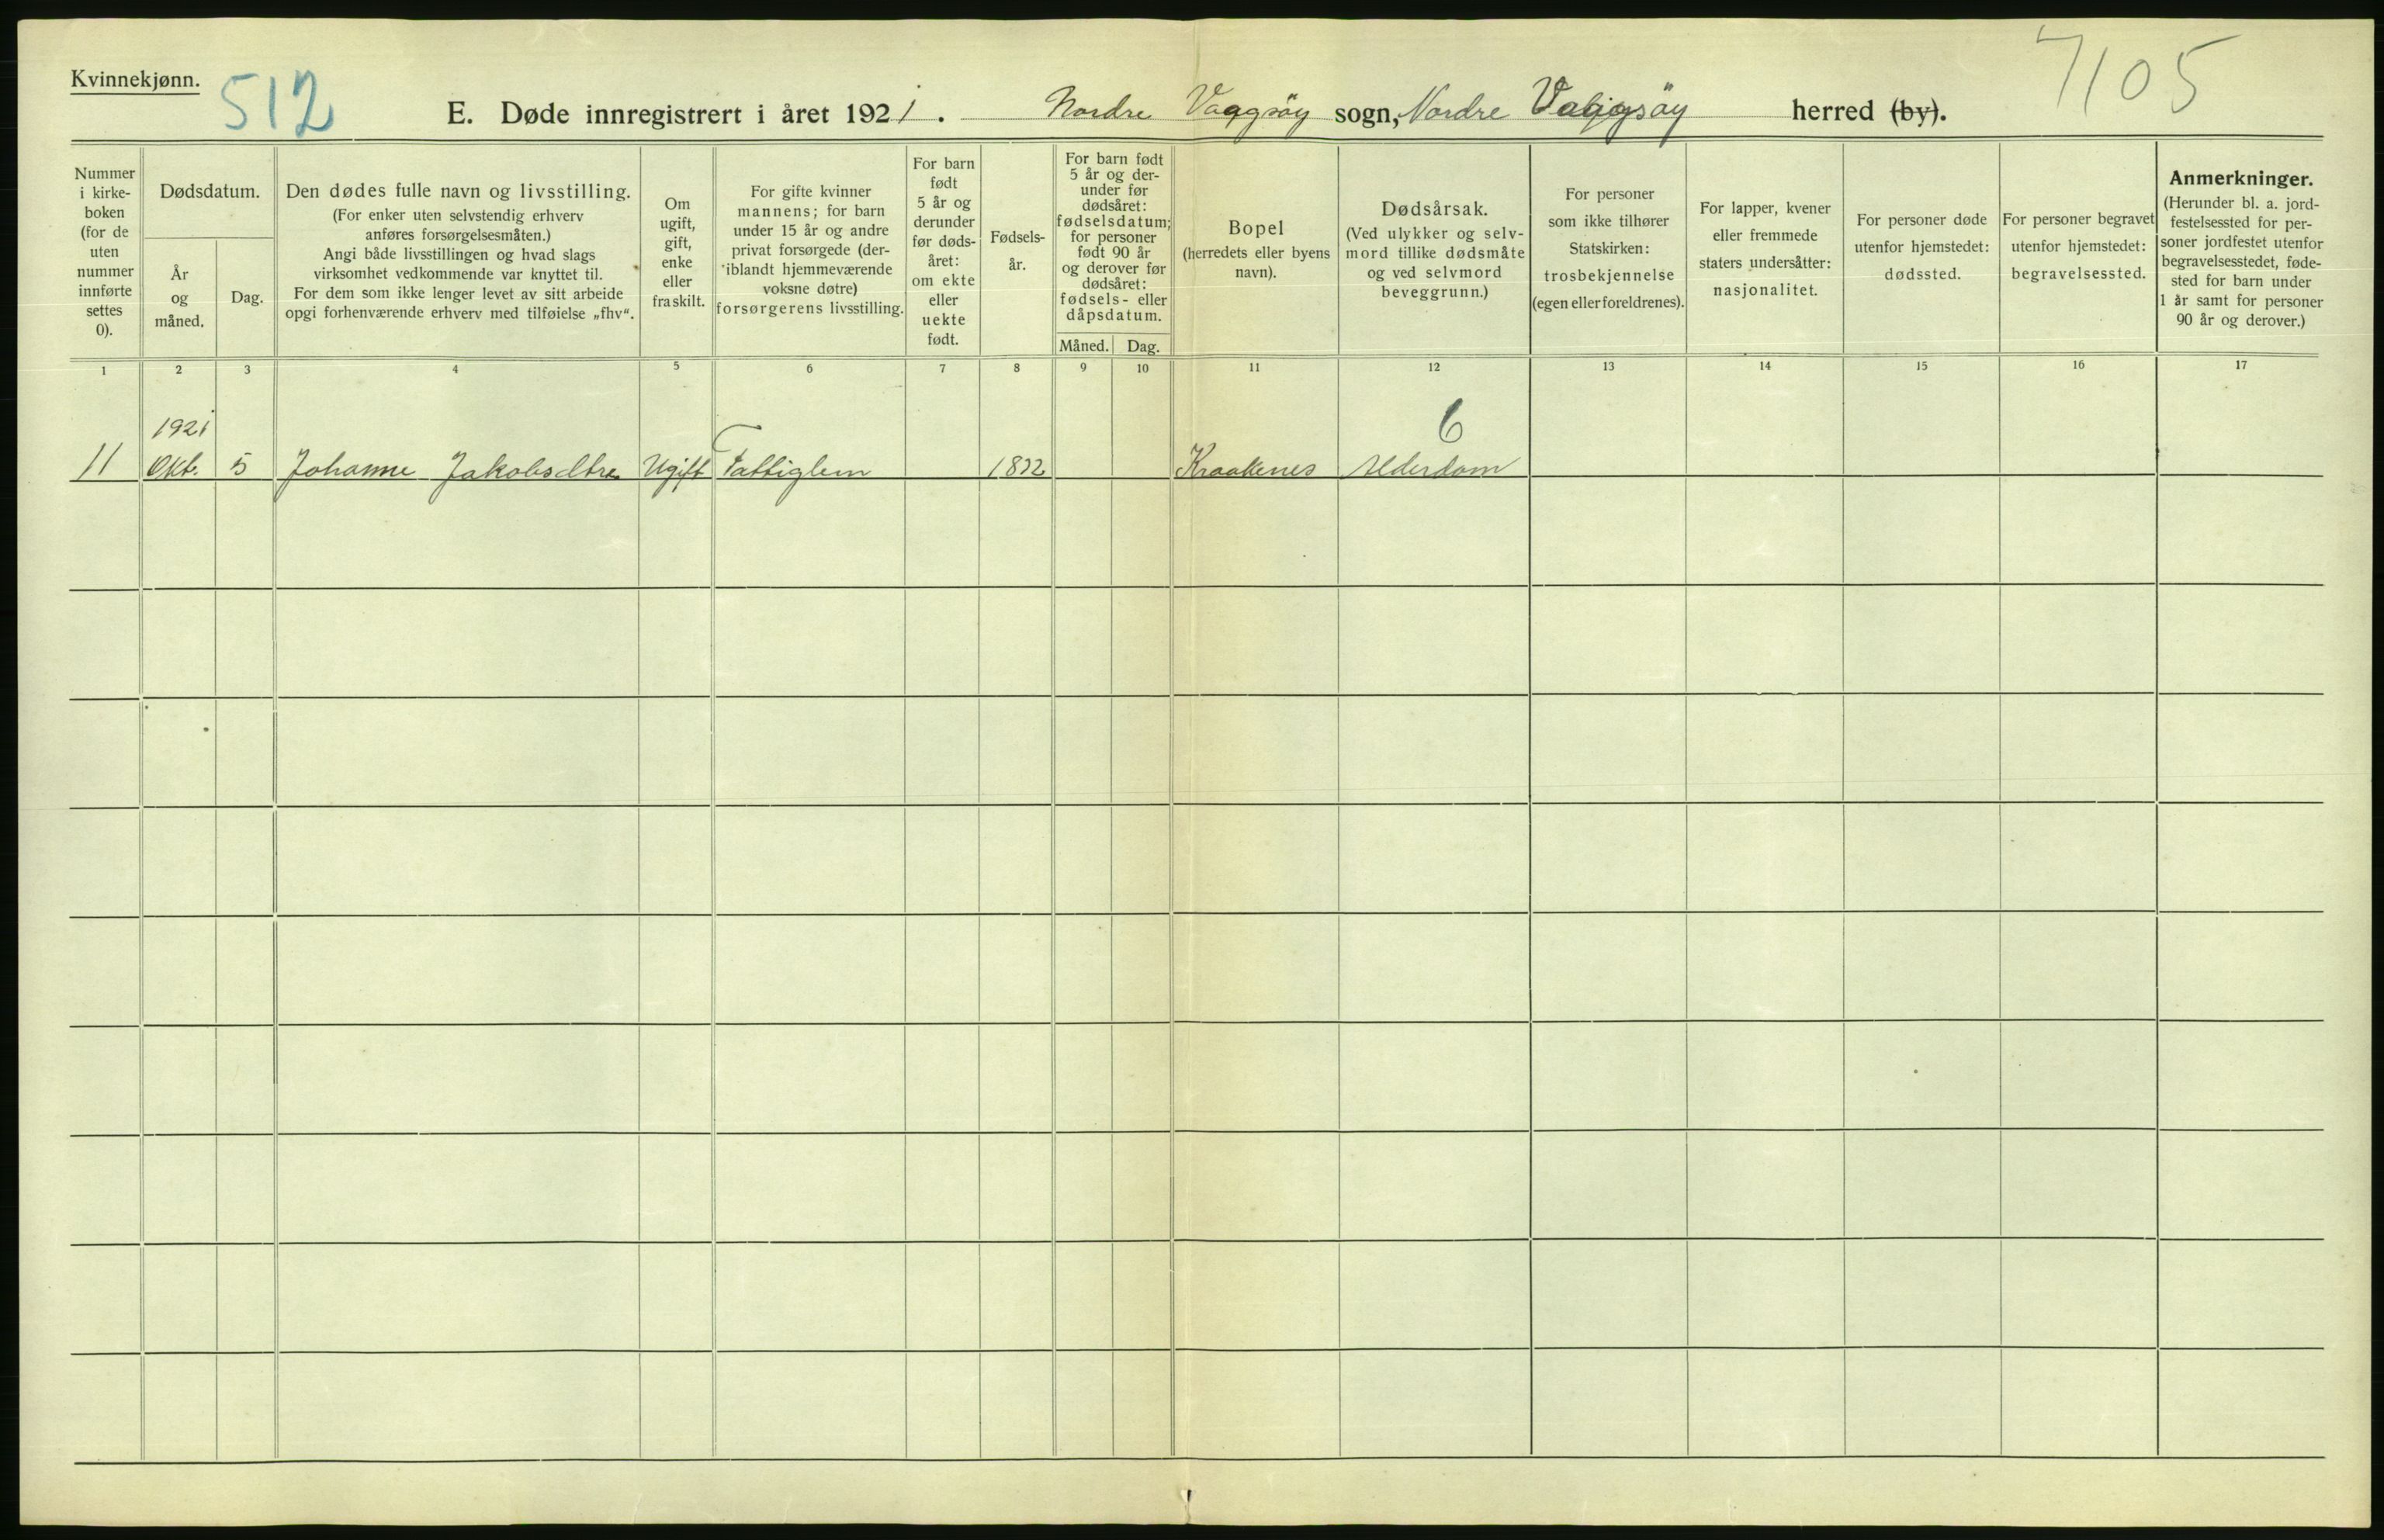 Kvinnekjønn.
512
7105
E. Døde innregistrert i året 1921. Nordre Vaagsöy sogn, Nordre Vaagsöy herred (by).
Nummer
i kirke-
boken
(for de
uten
nummer
innførte
settes
0).
Dødsdatum.
År
og
måned.
Dag.
Den dødes fulle navn og livsstilling.
(For enker uten selvstendig erhverv
anføres forsørgelsesmåten.)
Angi både livsstillingen og hvad slags
virksomhet vedkommende var knyttet til.
For dem som ikke lenger levet av sitt arbeide
opgi forhenværende erhverv med tilføielse „fhv“.
Om
ugift,
gift,
enke
eller
fraskilt.
For gifte kvinner
mannens; for barn
under 15 år og andre
privat forsørgede (der-
iblandt hjemmeværende
voksne døtre)
forsørgerens livsstilling.
For barn
født
5 år og
derunder
før døds-
året:
om ekte
eller
uekte
født.
Fødsels-
år.
For barn født
5 år og der-
under før
dødsåret:
fødselsdatum;
for personer
født 90 år
og derover før
dødsåret:
fødsels- eller
dåpsdatum.
Måned.
Dag.
Bopel
(herredets eller byens
navn).
Dødsårsak.
(Ved ulykker og selv-
mord tillike dødsmåte
og ved selvmord
beveggrunn.)
For personer
som ikke tilhører
Statskirken:
trosbekjennelse
(egen eller foreldrenes).
For lapper, kvener
eller fremmede
staters undersåtter:
nasjonalitet.
For personer døde
utenfor hjemstedet:
dødssted.
For personer begravet
utenfor hjemstedet:
begravelsessted.
Anmerkninger.
(Herunder bl. a. jord-
festelsessted for per-
soner jordfestet utenfor
begravelsesstedet, føde-
sted for barn under
1 år samt for personer
90 år og derover.)
1 2 3 4 5 6 7 8 9 10 11 12 13 14 15 16 17
1921
6
11 Okt. 5 Johanne Jakobsdtr. Ugift Fattiglem 1832 Kraakenes Alderdom